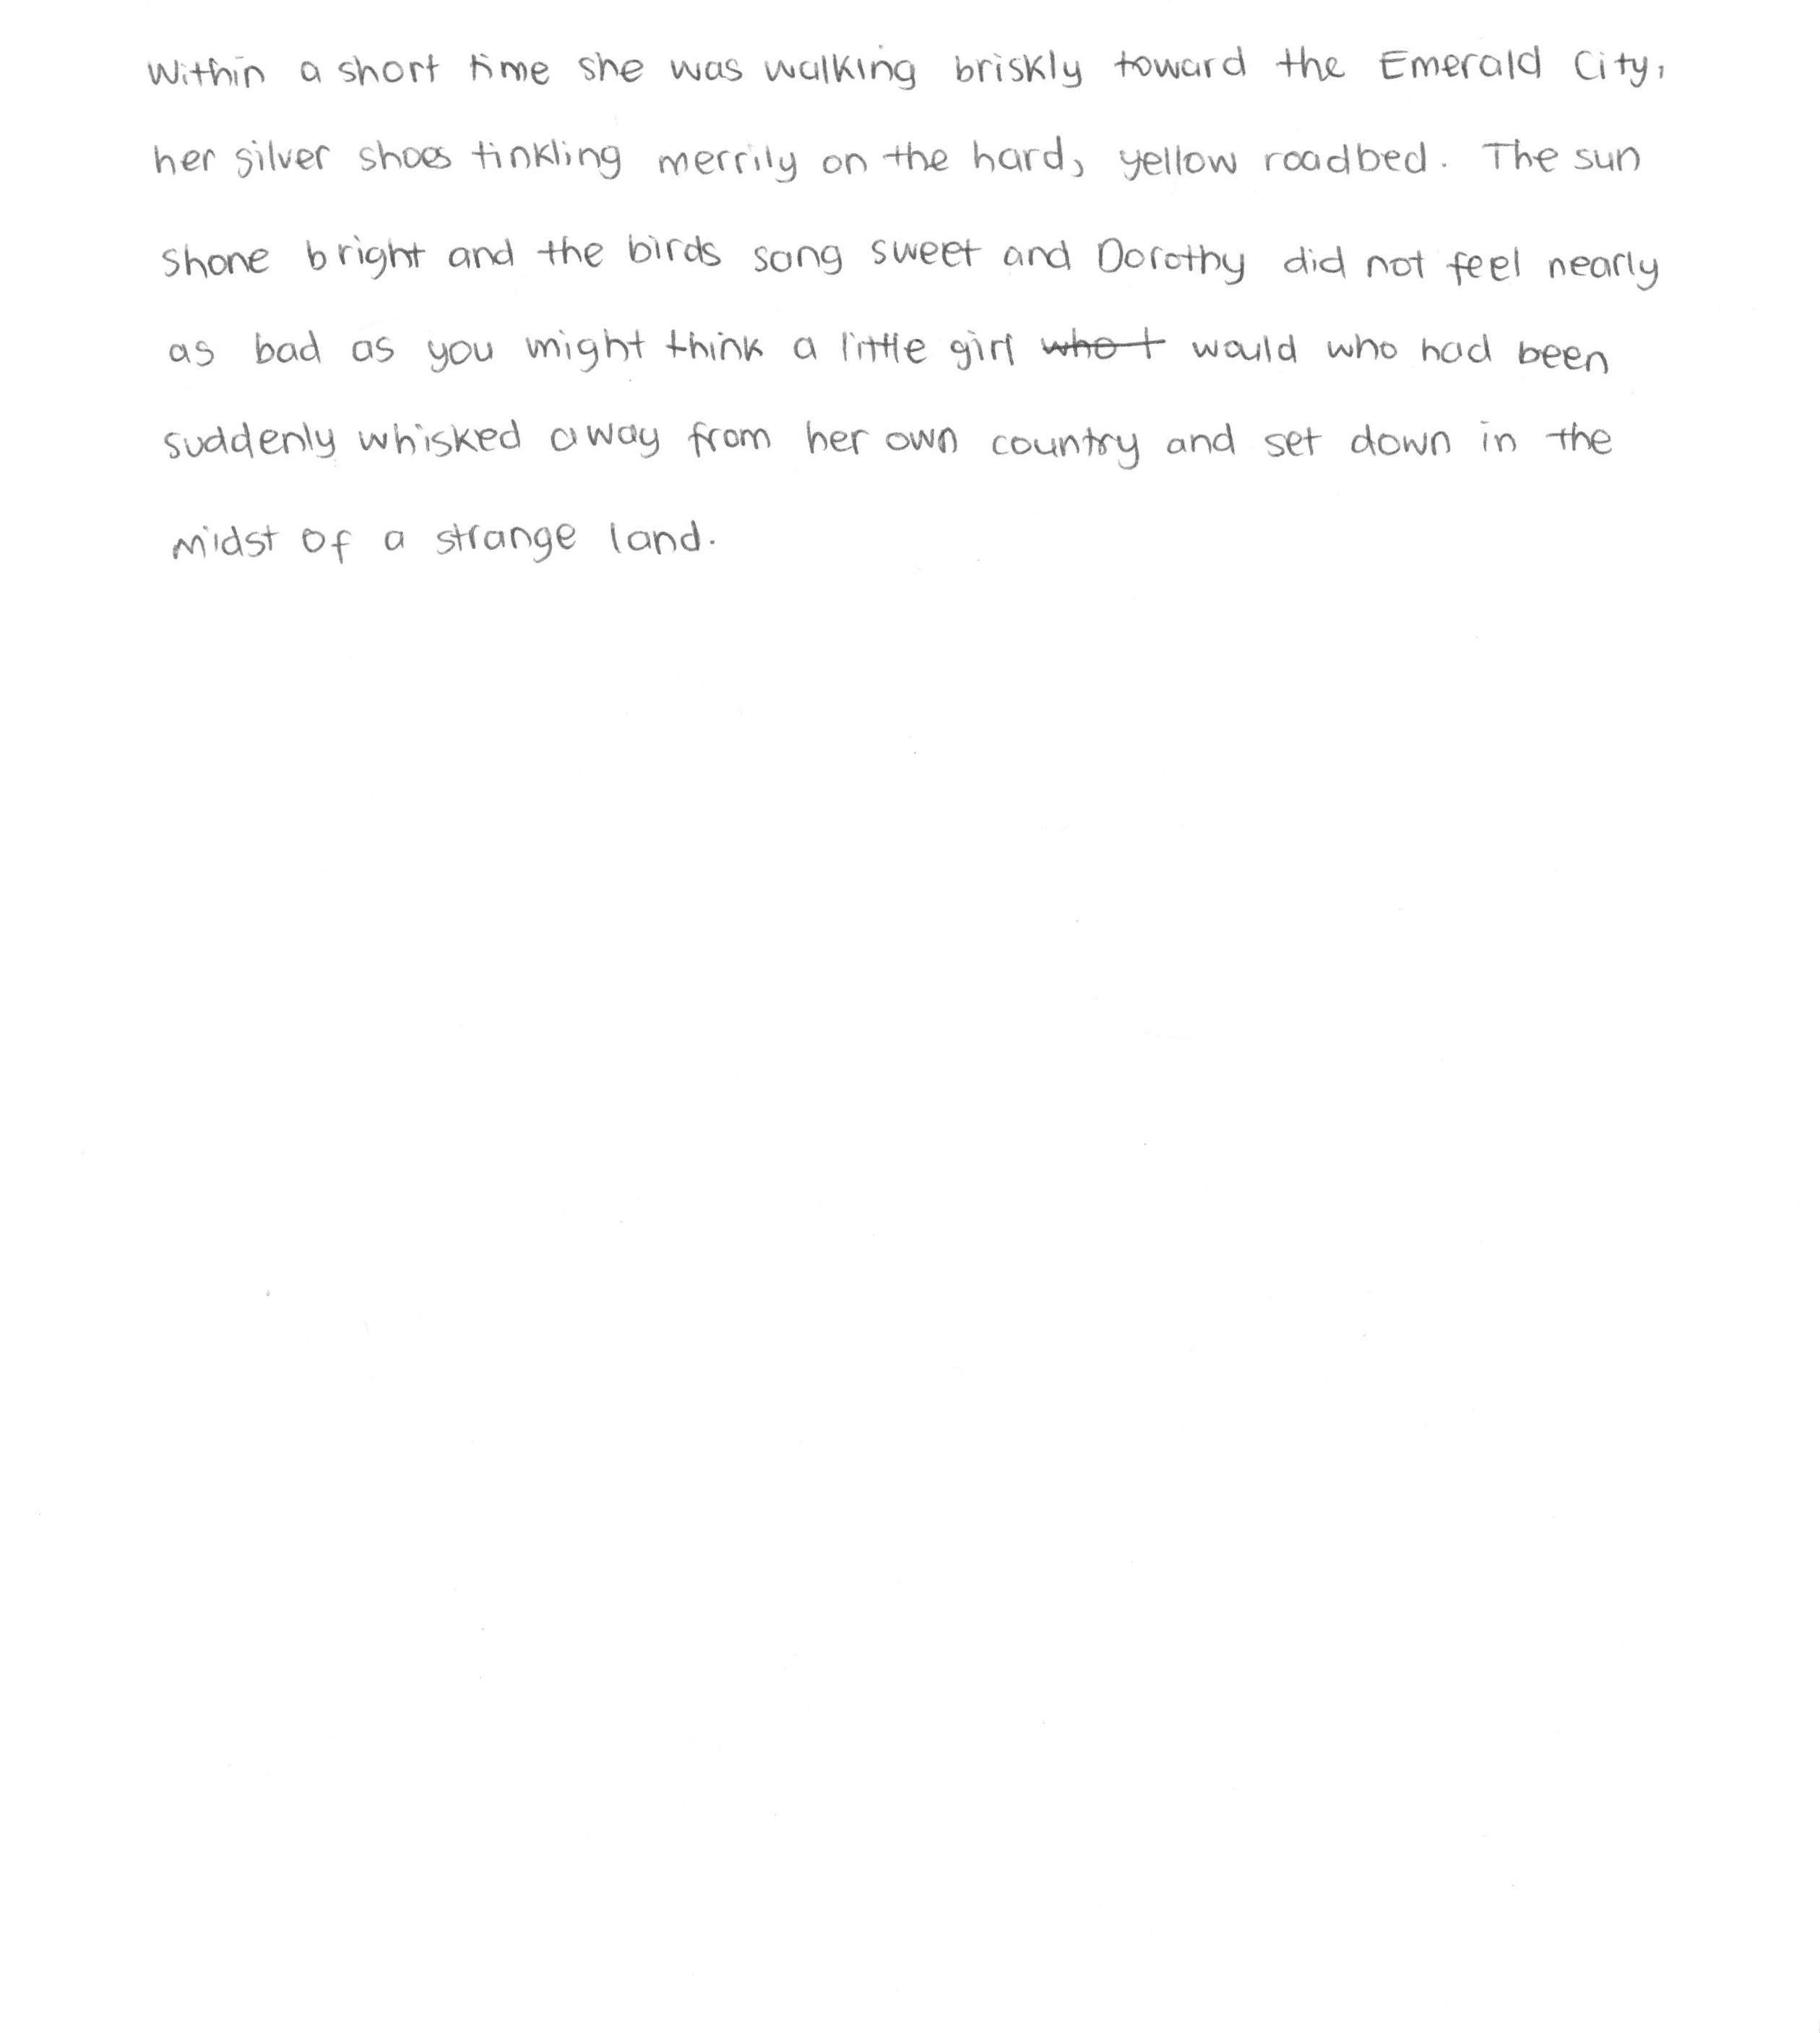 Within a short time she was walking briskly toward the Emerald City,
her silver shoes tinkling merrily on the hard, yellow roadbed. The sun
shone bright and the birds song sweet and Dorothy did not feel nearly
as bad as you might think a little girl who t would who had been
suddenly whisked away from her own country and set down in the
midst of a strange land.